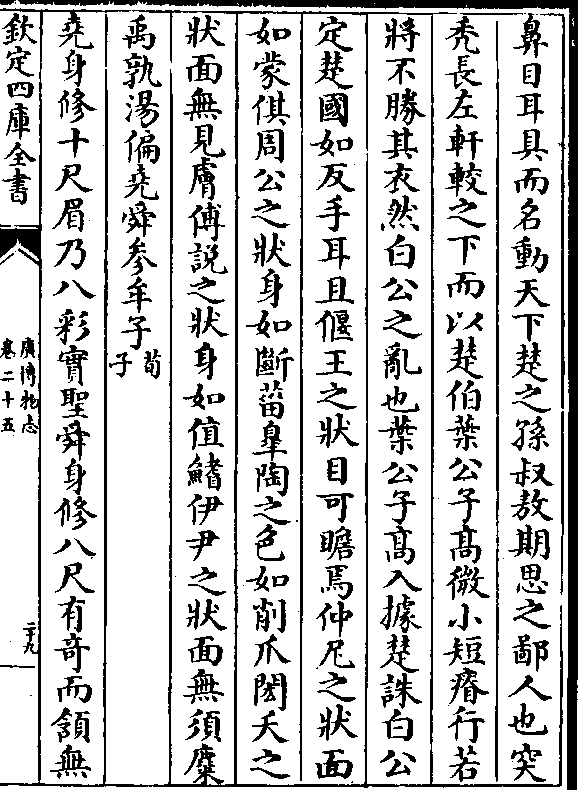 鼻目耳具而名動天下楚之孫叔敖期思之鄙人也突
禿長左軒較之下而以楚伯葉公子髙微小短瘠行若
將不勝其衣然白公之亂也葉公子髙入據楚誅白公
定楚國如反手耳且偃王之狀目可瞻焉仲尼之狀面
如蒙倛周公之狀身如斷菑臯陶之色如削爪閎夭之
狀面無見膚傅説之狀身如值鰭伊尹之狀面無須麋
禹孰湯偏堯舜參牟子荀子
堯身修十尺眉乃八彩實聖舜身修八尺有奇而頷無
欽定四庫全書
廣博物志
卷二十五
二十九